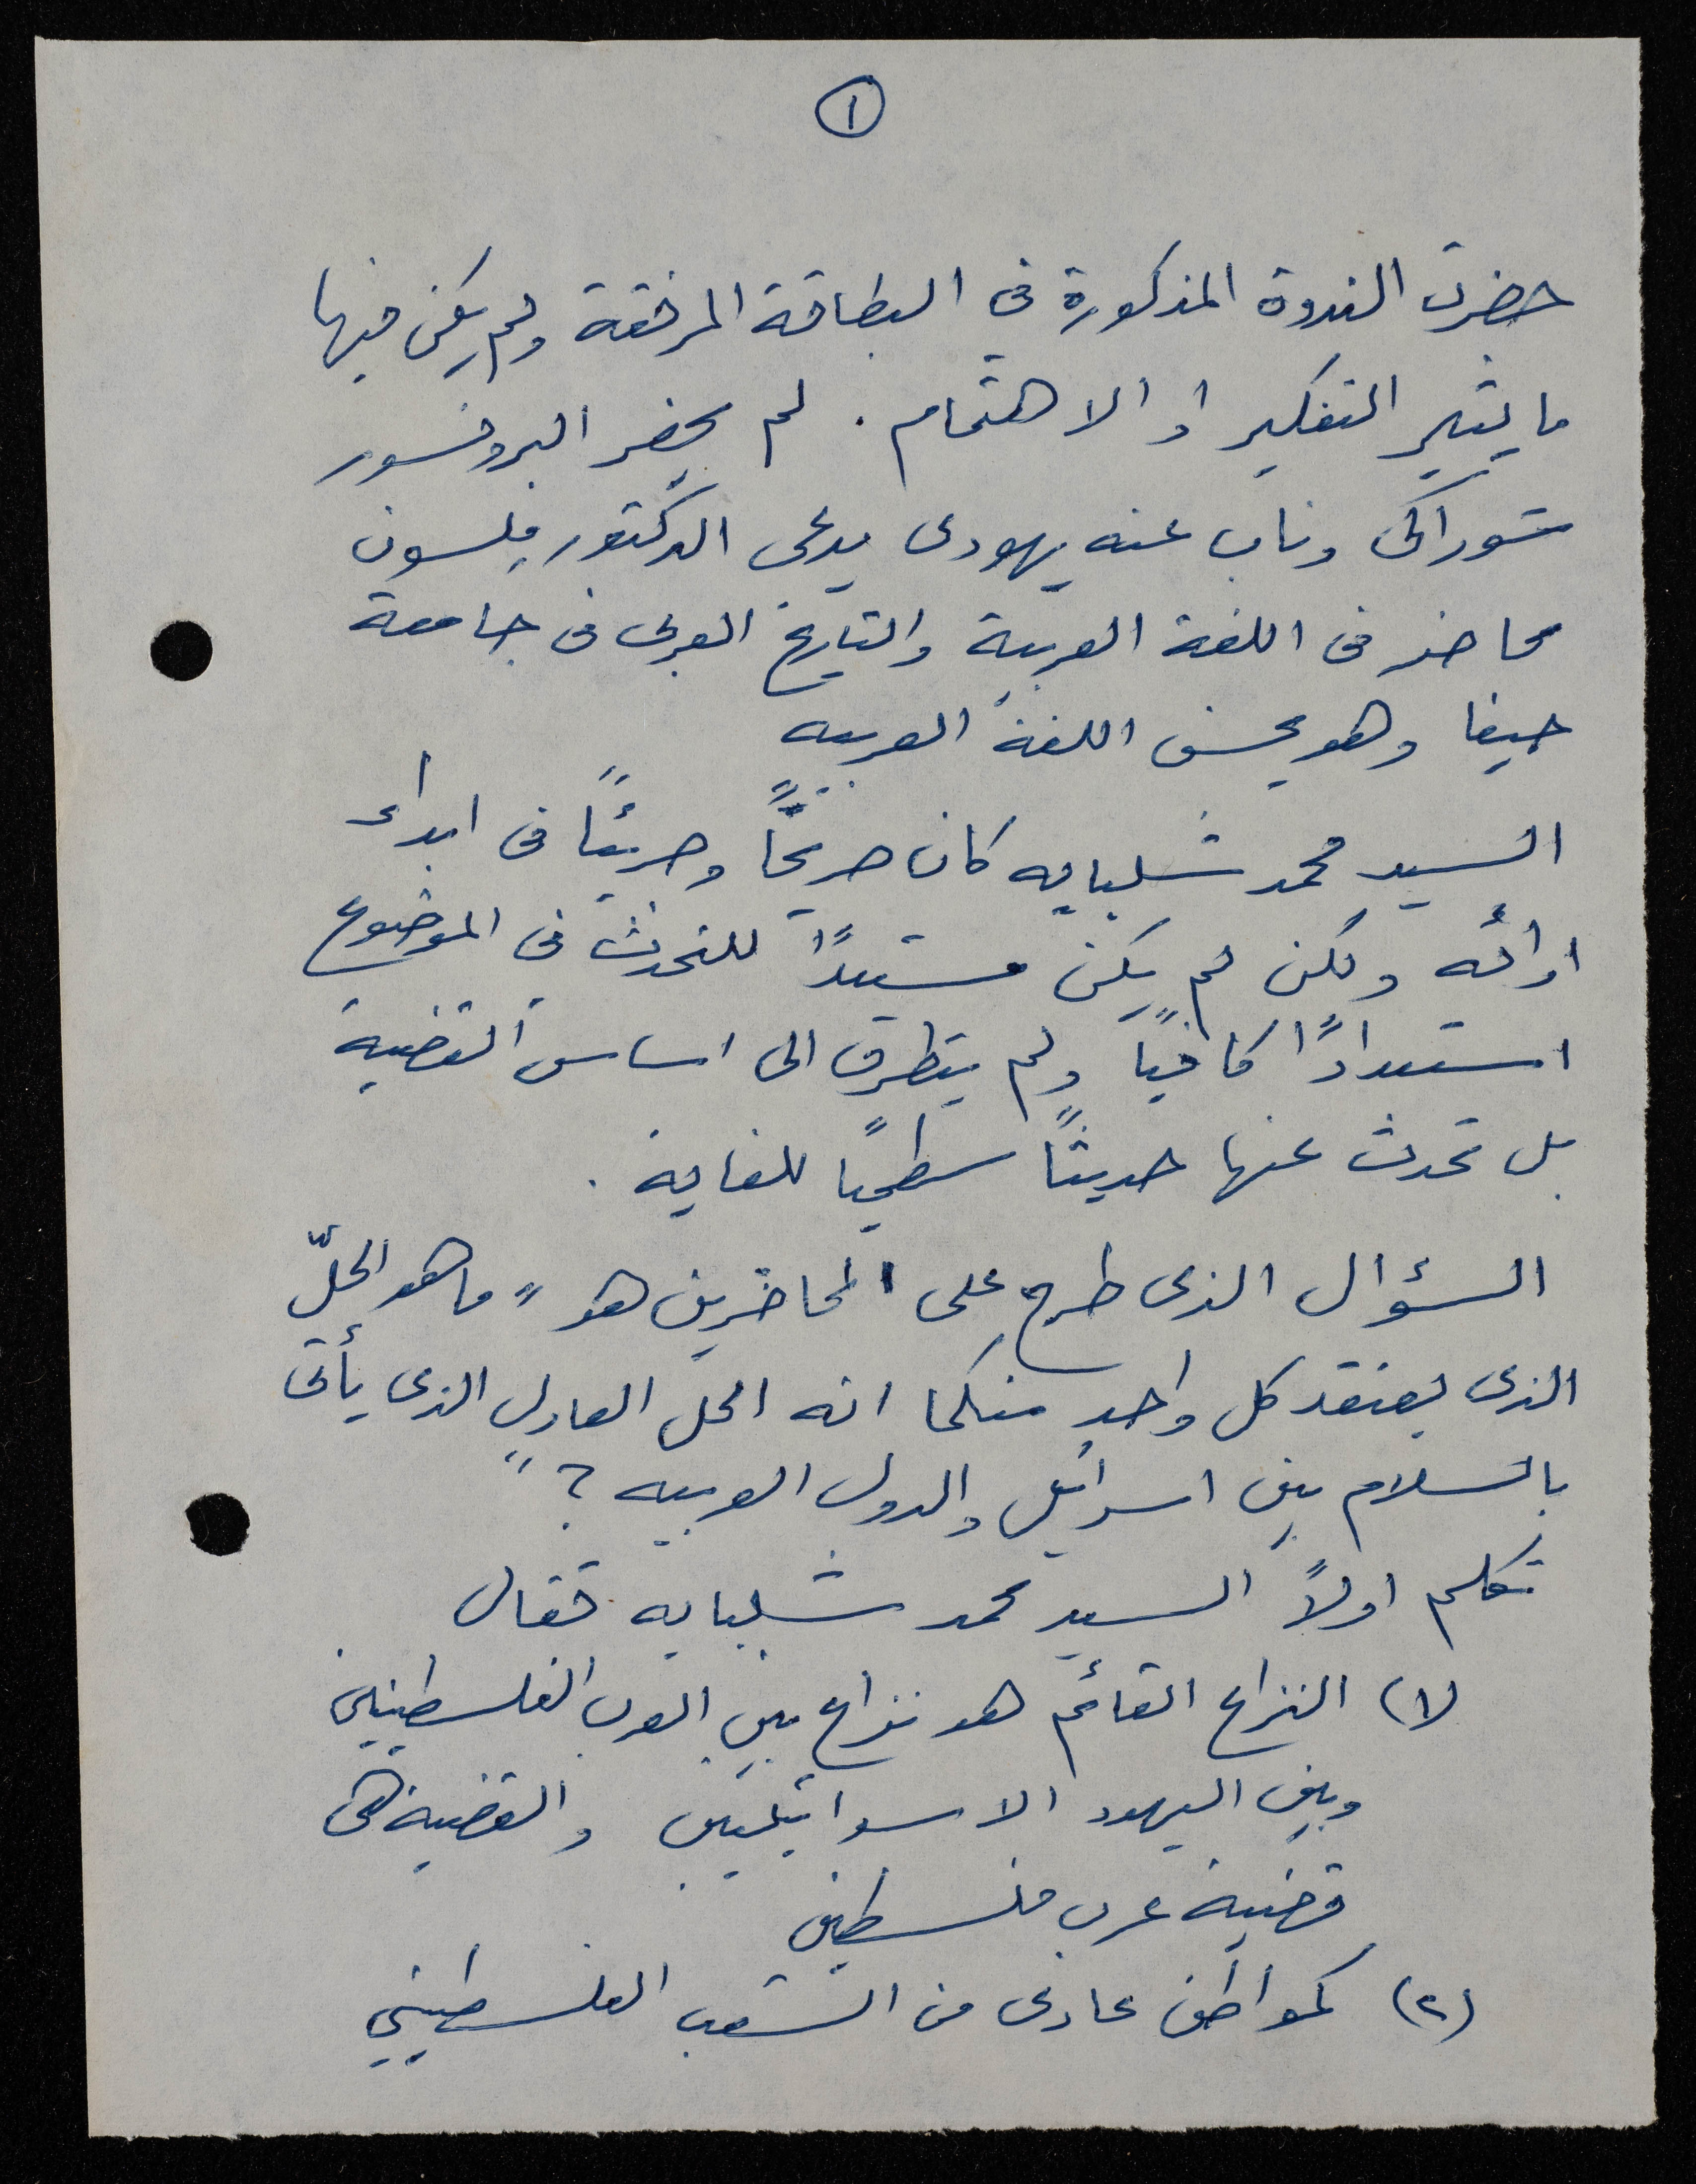 ١
حضرت الندوة المذكورة في البطاقة المرفقة ولم يكن فيها
ما يثير التفكير او الاهتمام . لم يحضر البروفسور
شوراكي وناب عنه يهودي يدعى الدكتور فلسون
محاضر في اللغة العربية والتاريخ العربي في جامعة
حيفا وهو يحسن اللغة العربيه
السيد محمد شلبايه كان صريحًا وجريئًا في ابداء
ارائه ولكن لم يكن مستعدًا للتحدث في الموضوع
استعدادًا كافيًا ولم يتطرق الى اساس القضية
بل تحدث عنها حديثًا سطحيًا للغاية .
السؤال الذي طرح على المحاضرين هو " ما هو الحلّ
الذي يعتقد كل واحد منكما انه الحل العادل الذي يأتي
بالسلام بين اسرائيل والدول العربيه ؟ "
تكلم اولاً السيد محمد شلبايه فقال
(١) النزاع القائم هو نزاع بين العرب الفلسطينين
وبين اليهود الاسرائيليين والقضية هي
قضية عرب فلسطين
(٢) كمواطن عادي من الشعب الفلسطيني